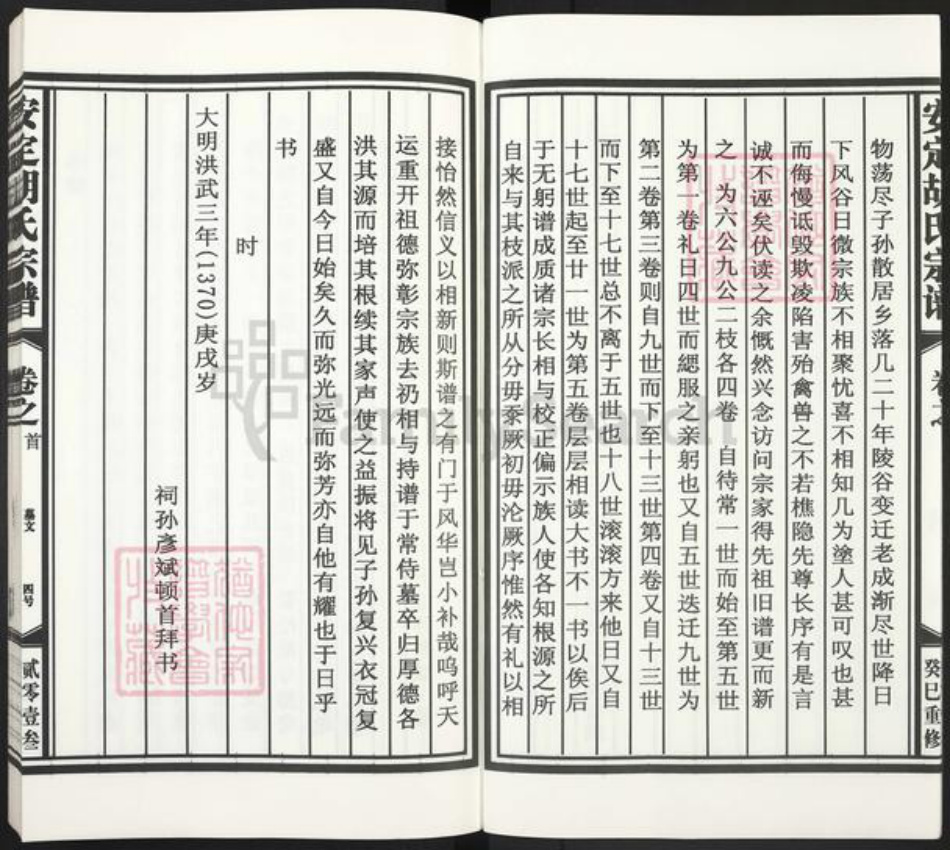 安定胡氏宗谱
卷之
癸巳重修
物荡尽子孙散居乡落几二十年陵谷变迁老成渐尽世降日
下风谷日微宗族不相聚忧喜不相知几为塗人甚可叹也甚
而侮慢诋毁欺凌陷害殆禽兽之不若樵隐先尊长序有是言
诚不诬矣伏读之余慨然兴念访问宗家得先祖旧谱更而新
之 为六公九公二枝各四卷 自待常一世而始至第五世
为第一卷礼日四世而緦服之亲躬也又自五世迭迁九世为
第二卷第三卷则自九世而下至十三世第四卷又自十三世
而下至十七世总不离于五世也十八世滚滚方来他日又自
十七世起至廿一世为第五卷层层相读大书不一书以俟后
于无躬谱成质诸宗长相与校正偏示族人使各知根源之所
自来与其枝派之所从分毋忝厥初毋沦厥序惟然有礼以相
接怡然信义以相新则斯谱之有门于风华岂小补哉呜呼天
运重开祖德弥彰宗族去礽相与持谱于常侍墓卒归厚德各
洪其源而培其根续其家声使之益振将见子孙复兴衣冠复
盛又自今日始矣久而弥光远而弥芳亦自他有耀也于日乎
书
时
大明洪武三年(1370)庚戌岁
祠孙彦斌顿首拜书
安定胡氏宗谱
卷之
首
墓文
四号
贰零壹叁
FamilySearch